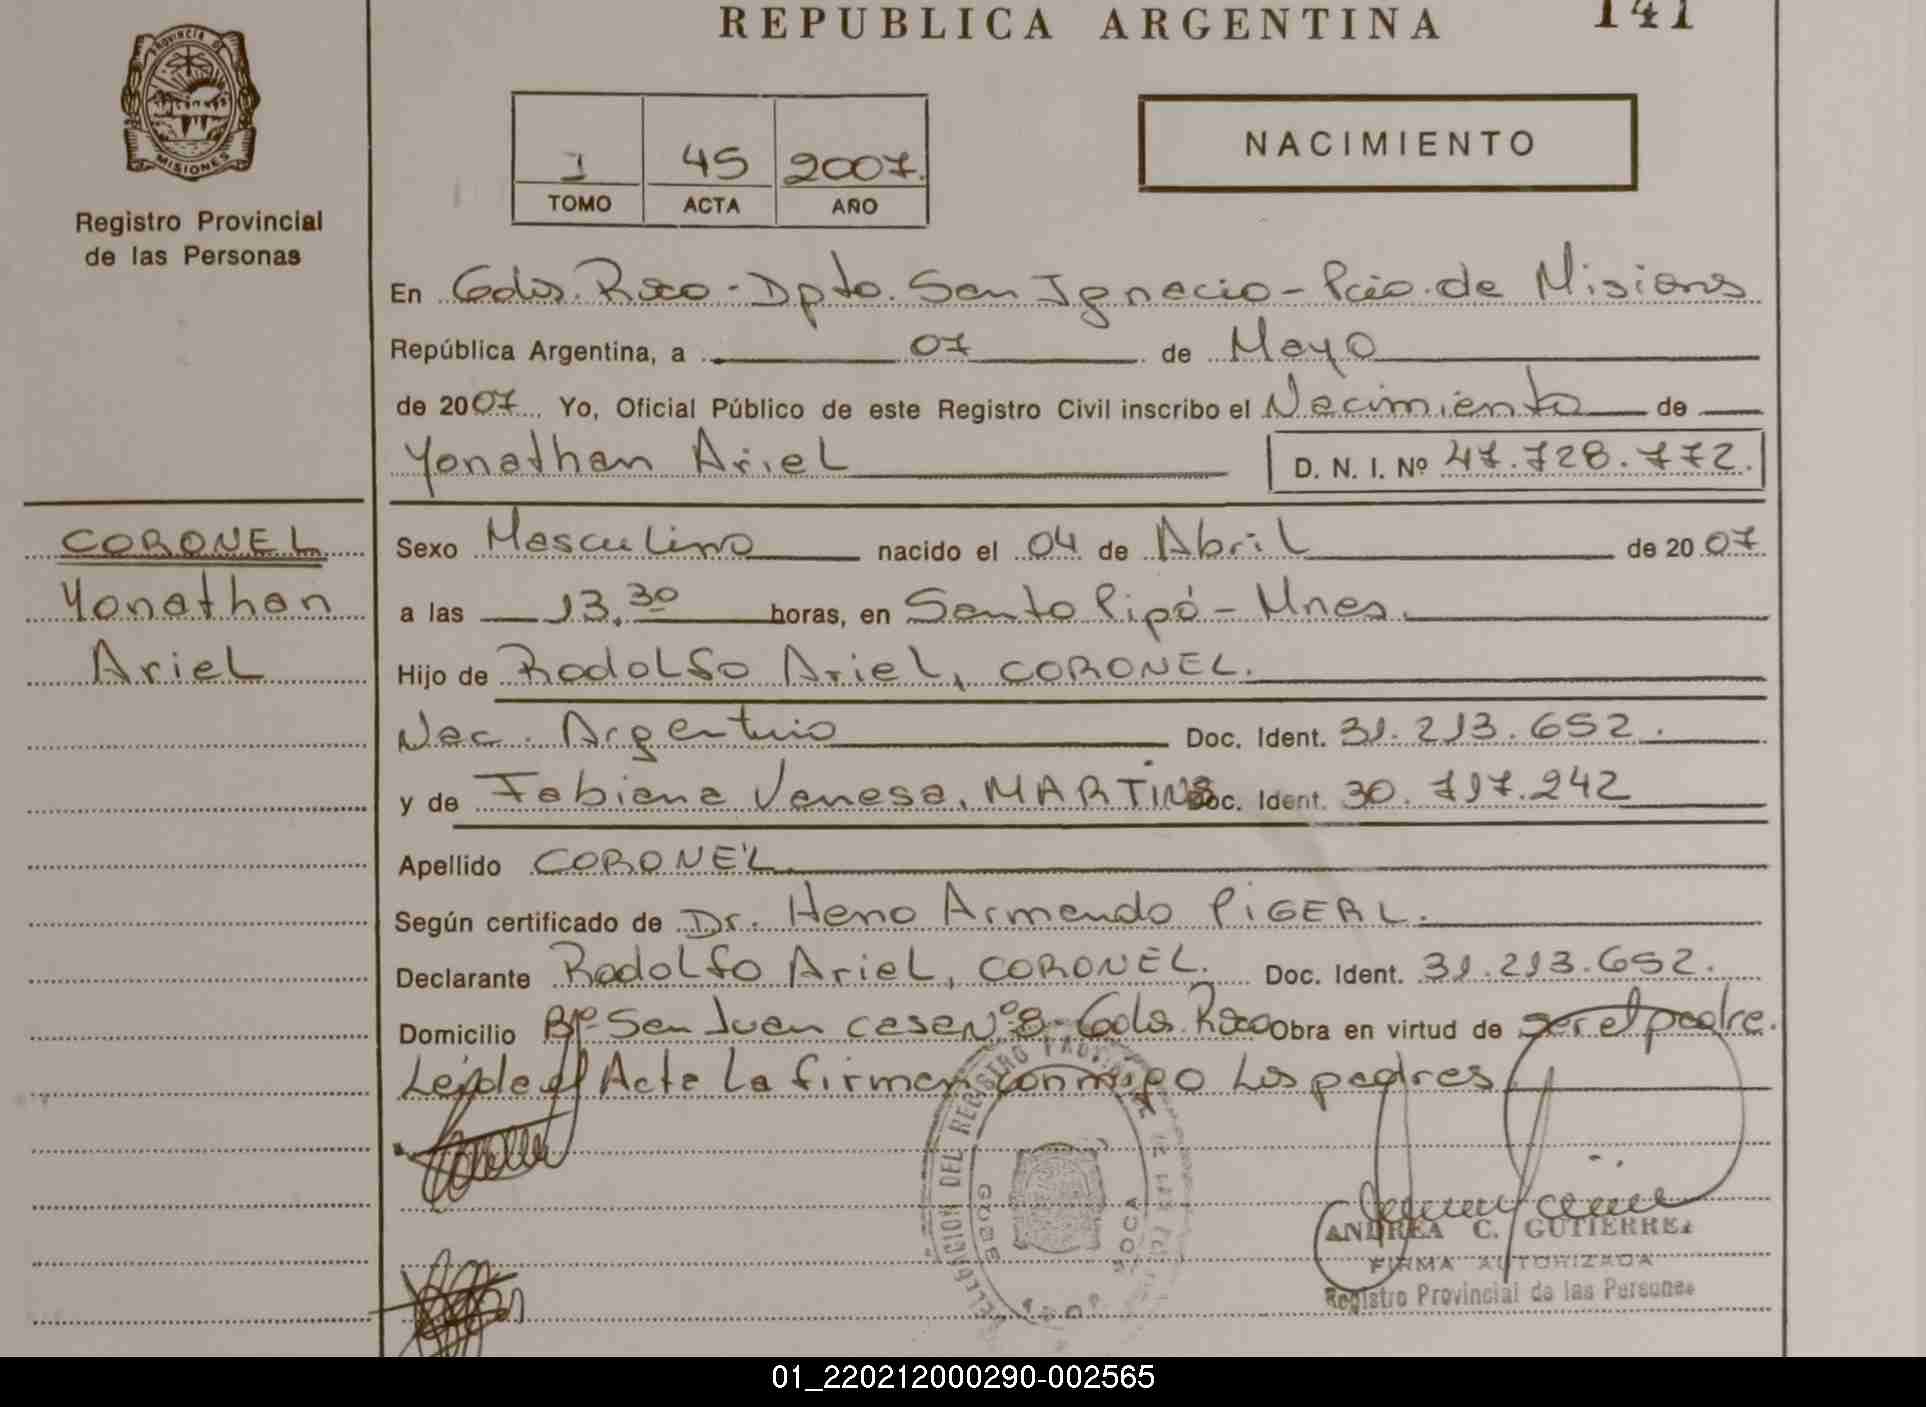 REPUBLICA ARGENTINA 141
PROVINCIA DE
MISIONES
Registro Provincial
de las Personas
1 45 2007.
TOMO ACTA AÑO
NACIMIENTO
En Gdor. Roca - Dpto. San Ignacio - Pcia. de Misiones
República Argentina, a 07 de Mayo
de 2007 Yo, Oficial Público de este Registro Civil inscribo el Nacimiento de
Yonathan Ariel D. N. I. Nº 47.728.772.
CORONEL
Yonathan
Ariel
Sexo Masculino nacido el 04 de Abril de 2007
a las 13,30 horas, en Santo Pipó - Mnes.
Hijo de Rodolfo Ariel, CORONEL.
Nac. Argentino Doc. Ident. 31.213.652.
y de Fabiana Vanesa, MARTINS Doc. Ident. 30.717.242
Apellido CORONEL
Según certificado de Dr. Heno Armando PIGERL.
Declarante Rodolfo Ariel, CORONEL. Doc. Ident. 31.213.652.
Domicilio Bº San Juan casa Nº 8 - Gdor. Roca Obra en virtud de ser el padre.
Leída el Acta la firman conmigo los padres
DELEGACION DEL REGISTRO PROVINCIAL DE LAS
GOBE ROCA
ANDREA C. GUTIERREZ
FIRMA AUTORIZADA
Registro Provincial de las Personas
01_220212000290-002565